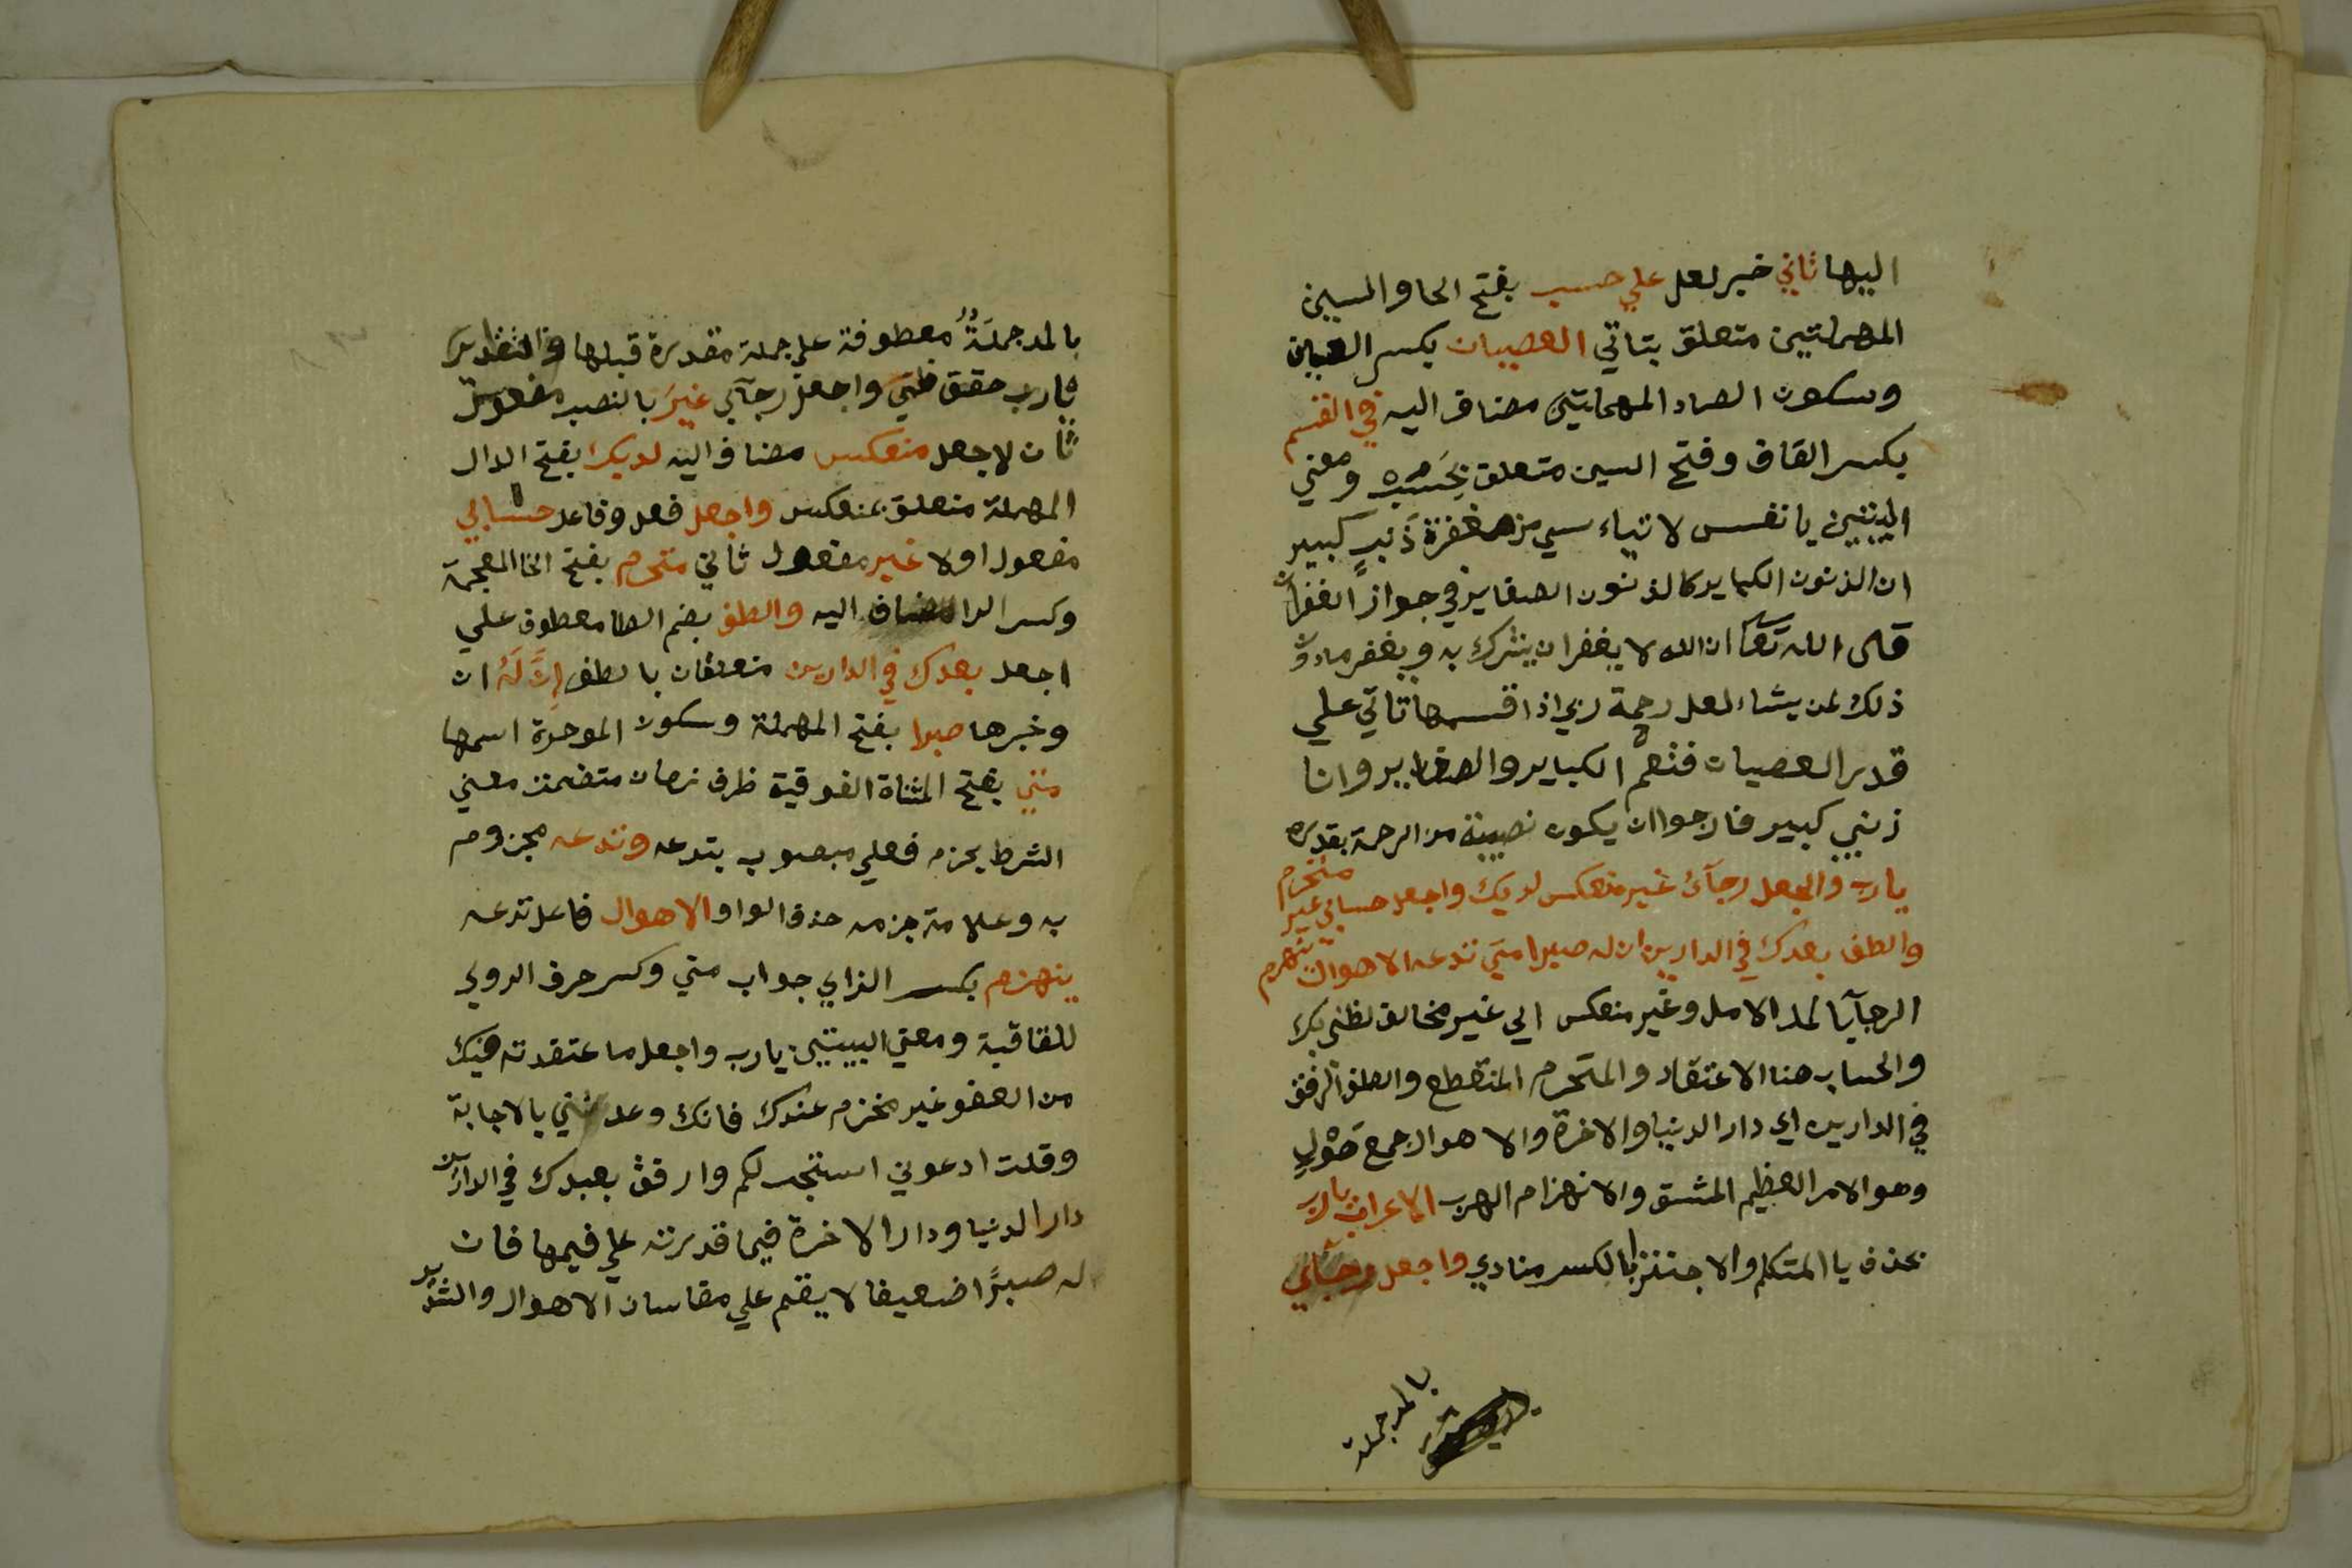 اليها تاتي خبر لعل علي حسب بفتح الحا والسين
المهملتين متعلق بتاتي العصيان بكسر العين
وسكون الصاد المهملتين مضاف اليه في القسم
بكسر القاف وفتح السين متعلق بحسب ومعني
البيتين يا نفس لا تياء سي من مغفرة ذنب كبير
ان الذنوب الكباير كالذنوب الصغاير في جواز الغفران
قال الله تعا ان الله لا يغفر ان يشرك به ويغفر ما دون
ذلك لمن يشاء لعل رحمة ربي اذا قسمها تاتي علي
قدر العصيان فتعم الكباير والصغاير وانا
ذنبي كبير فارجوا ان يكون نصيبه من الرحمة بقدره
يارب واجعل رجآئ غير منعكس لديك واجعل حسابي غير منخرم
والطف بعبدك في الدارين ان له صبرا متي تدعه الاهوال ينهزم
الرجآ بالمد الامل وغير منعكس اي غير مخالف لظني بك
والحساب هنا الاعتقاد والمنخرم المنقطع والطف الرفق
في الدارين اي دار الدنيا والاخرة والاهوال جمع هول
وهو الامر العظيم المشق والانهزام الهرب الاعراب يارب
بحذف يا المتكلم والاجتزا بالكسر منادي واجعل رجآئي
بالمد جملة
بالمد جملة معطوفة علي جملة مقدرة قبلها والتقدير
يارب حقق ظني واجعل رجآئي غير بالنصب مفعول
ثان لاجعل منعكس مضاف اليه لديك بفتح الدال
المهملة متعلق بمنعكس واجعل فعل وفاعل حسابي
مفعول اولا غير مفعول ثاني منخرم بفتح الخا المعجمة
وكسر الرا مضاف اليه والطف بضم الطا معطوف علي
اجعل بعبدك في الدارين متعلقان بالطف إنّ لَهُ ان
وخبرها صبرا بفتح المهملة وسكون الموحدة اسمها
متي بفتح المثناة الفوقية ظرف زمان متضمن معني
الشرط يجزم فعلي منصوب بتدعه وتدعه مجزوم
به وعلامة جزمه حذف الواو الاهوال فاعل تدعه
ينهزم بكسر الزاي جواب متي وكسر حرف الروي
للقافية ومعني البيتين يارب واجعل ما اعتقدته فيك
من العفو غير منخرم عندك فانك وعدتني بالاجابة
وقلت ادعوني استجب لكم وارفق بعبدك في الدارين
دار الدنيا ودار الاخرة فيما قدرته علي فيها فان
له صبرًا ضعيفا لا يقم علي مقاسات الاهوال والشدايد